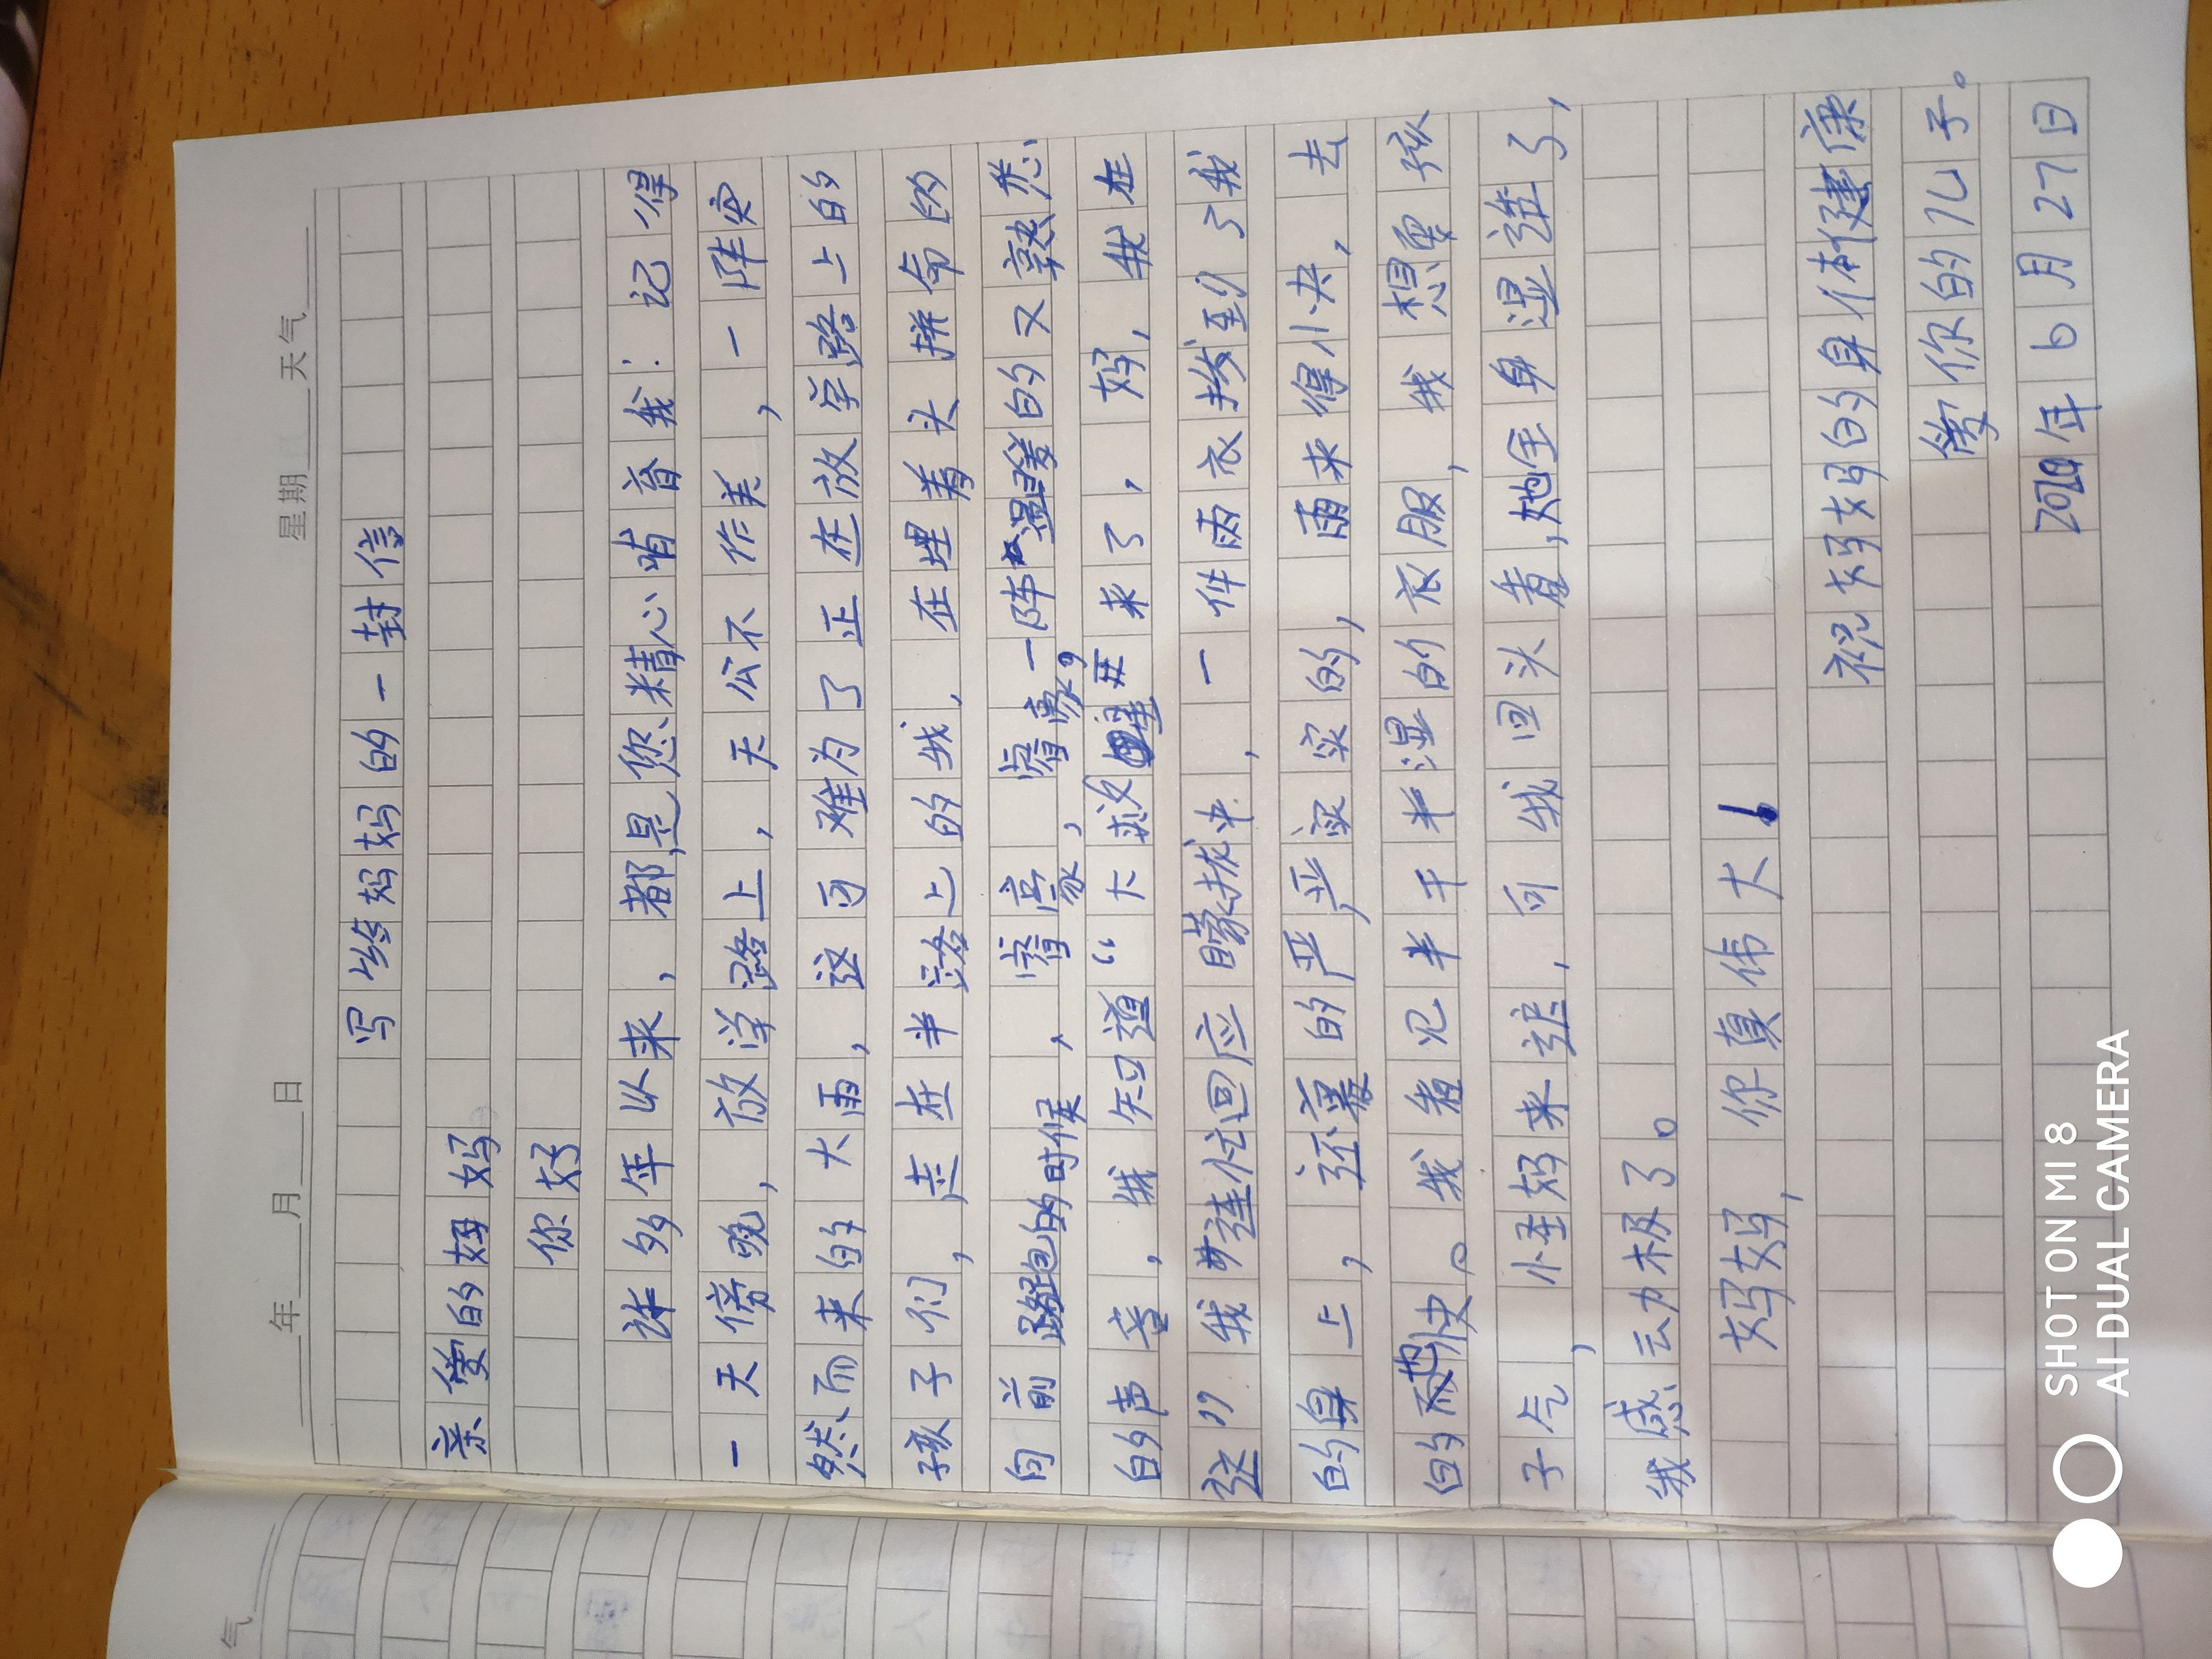 年 月 日 星期 天气
写给妈妈的一封信
亲爱的妈妈
你好
许多年以来，都是您精心哺育我：记得
一天傍晚，放学路上，天公不作美，一阵突
然而来的大雨，这可难为了正在放学路上的
孩子们，走在半路上的我，在埋着头拼命的
向前跑的时候，嘀嗒，嘀嗒，一阵温暖的又熟悉
的声音，我知道“大救星来了，妈，我在
这”我连忙回应朦胧中，一件雨衣披到了我
的身上，还裹的严严实实的，雨来得小快，去
的也快。我看见半干半湿的衣服，我想耍孩
子气，怪妈来迟，可我回头看，她全身湿透了，
我感动极了。
妈妈，你真伟大！
祝妈妈的身体健康
爱你的儿子。
2020年6月27日
气
SHOT ON MI 8
AI DUAL CAMERA